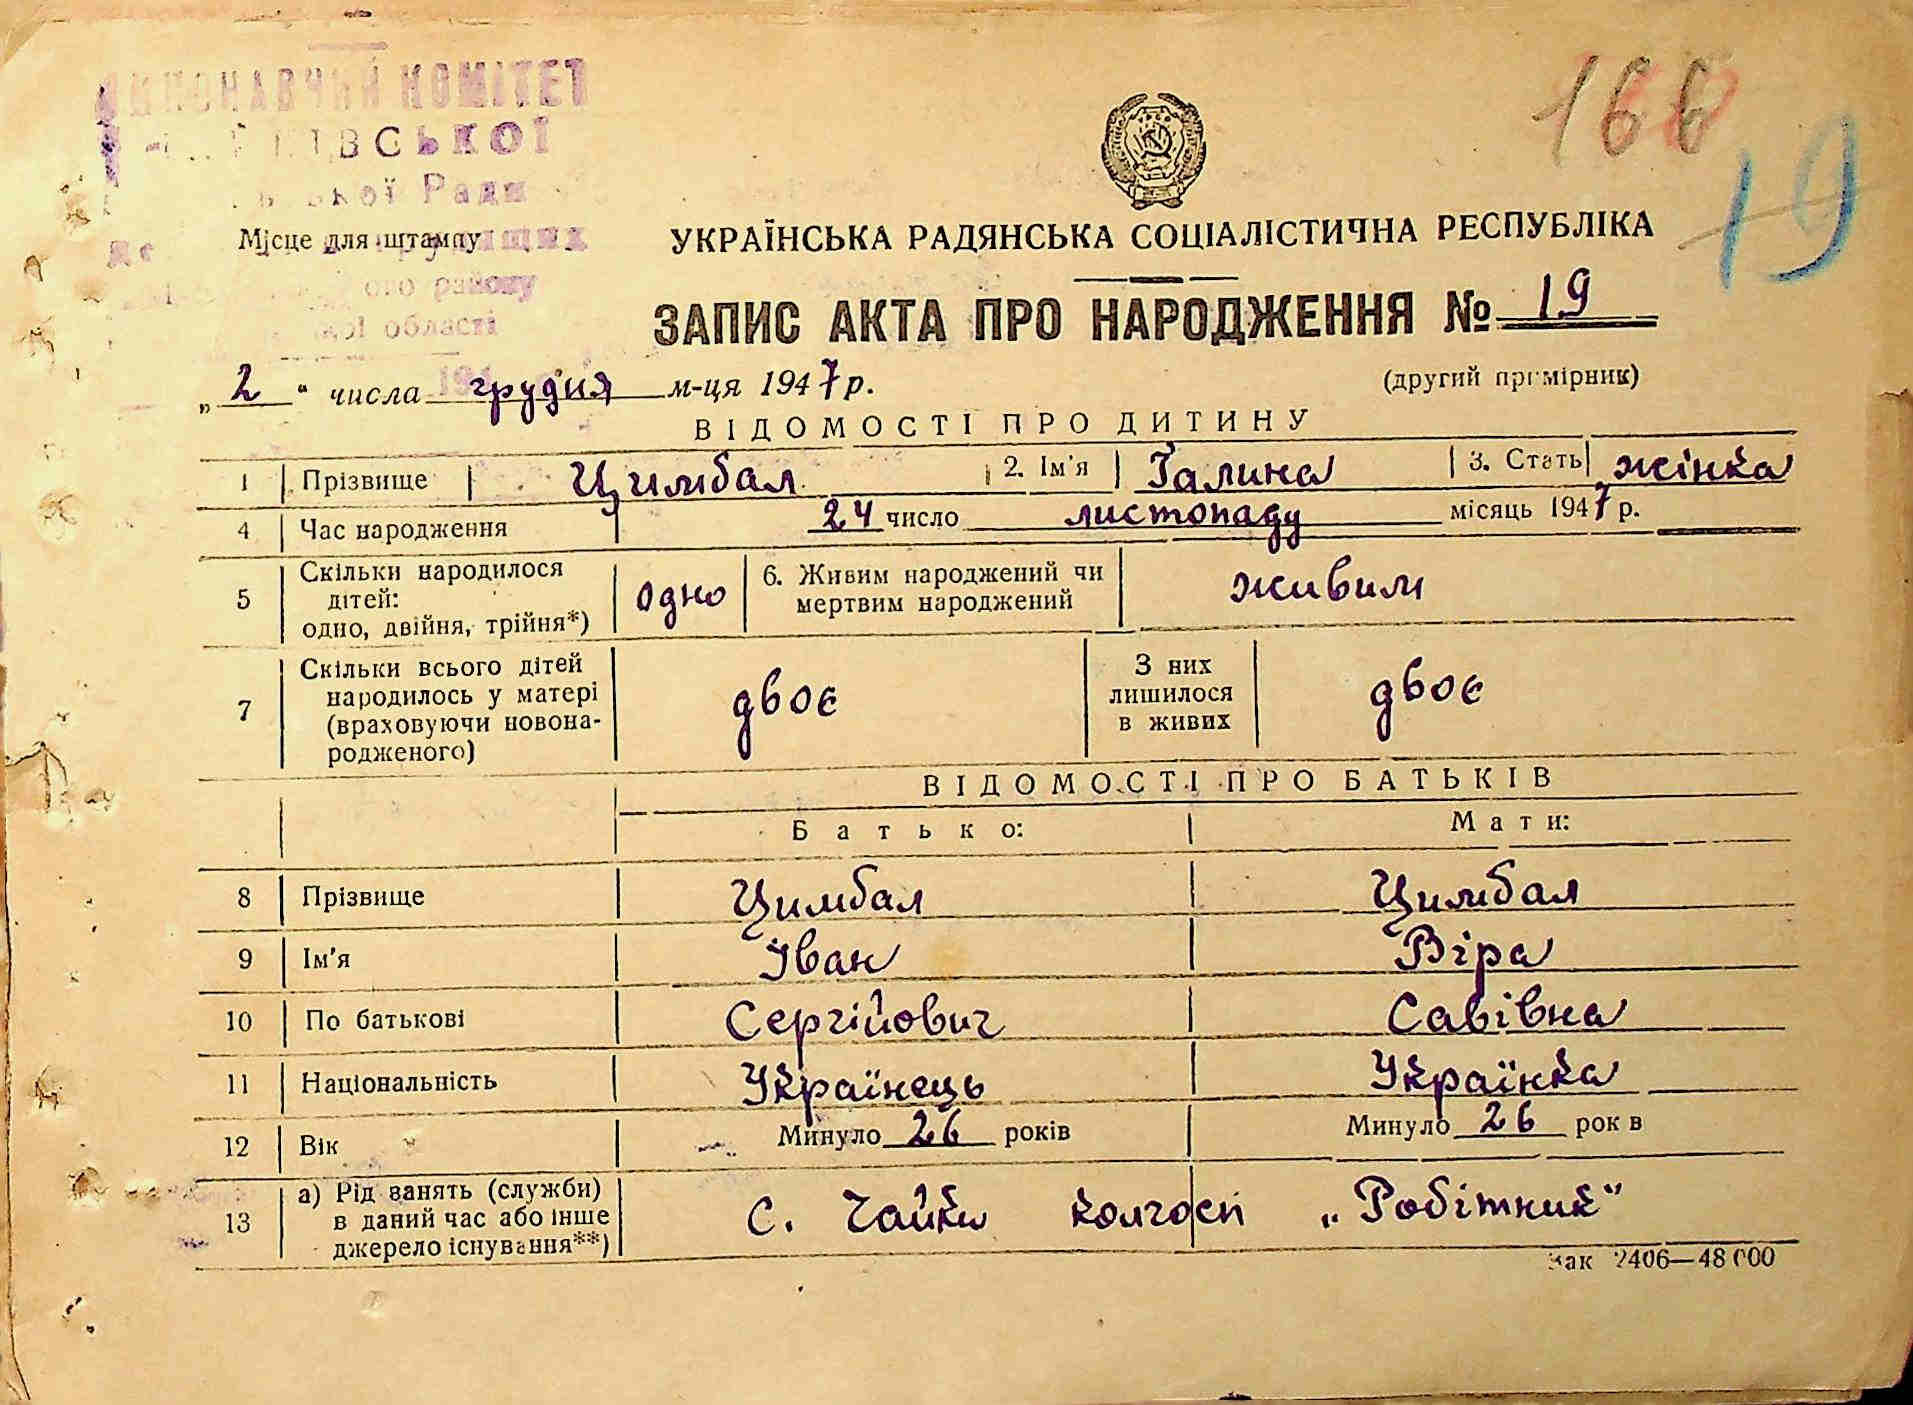 ВИКОНАВЧИЙ КОМІТЕТ
166
19
Ради
Місце для штампу
УКРАЇНСЬКА РАДЯНСЬКА СОЦІАЛІСТИЧНА РЕСПУБЛІКА
району
області
ЗАПИС АКТА ПРО НАРОДЖЕННЯ № 19
„2“ числа грудня м-ця 1947 р. (другий примірник)
ВІДОМОСТІ ПРО ДИТИНУ
1 Прізвище Цимбал 2. Ім'я Галина 3. Стать жінка
4 Час народження 24 число листопаду місяць 1947 р.
5 Скільки народилося дітей: одно, двійня, трійня*) одно 6. Живим народжений чи мертвим народжений живим
7 Скільки всього дітей народилось у матері (враховуючи новонародженого) двоє З них лишилося в живих двоє
ВІДОМОСТІ ПРО БАТЬКІВ
Батько: Мати:
8 Прізвище Цимбал Цимбал
9 Ім'я Іван Віра
10 По батькові Сергійович Савівна
11 Національність Українець Українка
12 Вік Минуло 26 років Минуло 26 рок в
13 а) Рід занять (служби) в даний час або інше джерело існування**) с. Чайки колгосп „Робітник"
Зак 2406—48 000